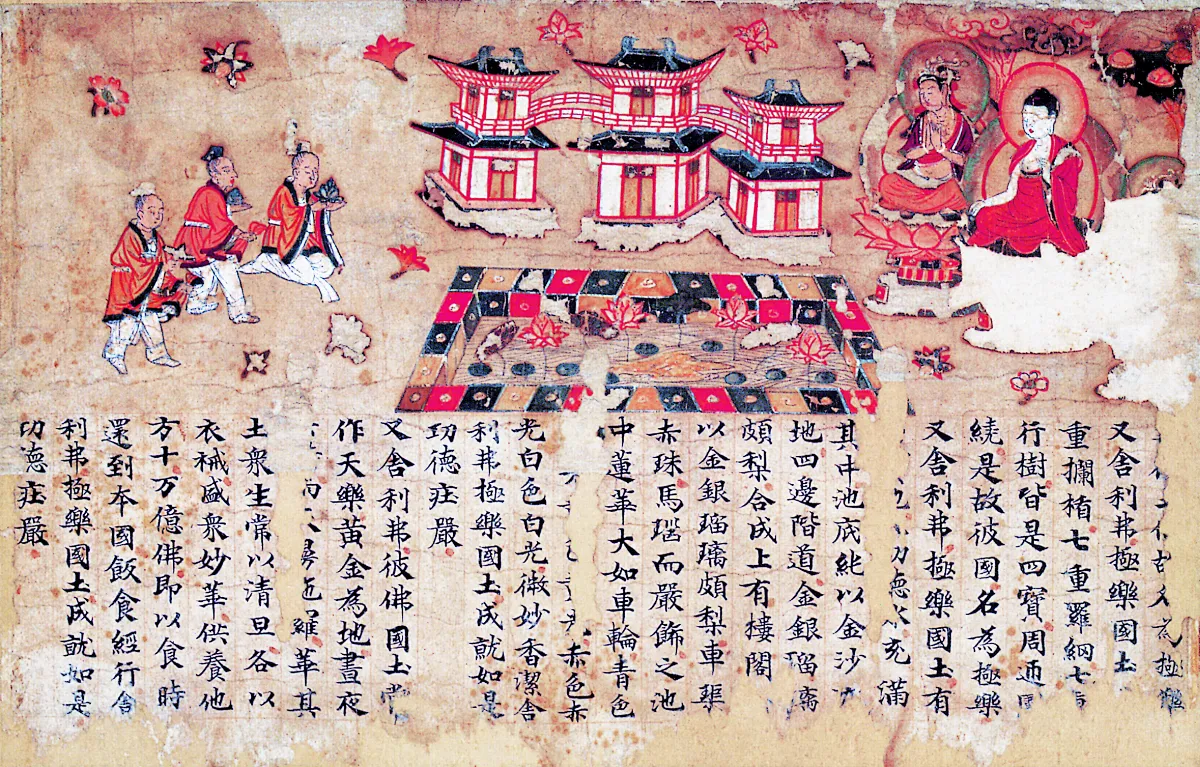 極樂
又舍利弗極樂國土
重欄楯七重羅網七
行樹皆是四寶周迊
繞是故彼國名為極樂
又舍利弗極樂國土有
功德水充滿
其中池底純以金沙
地四邊階道金銀瑠璃
頗梨合成上有樓閣
以金銀瑠璃頗梨車璖
赤珠馬瑙而嚴飾之池
中蓮華大如車輪青色
赤色赤
光白色白光微妙香潔舍
利弗極樂國土成就如是
功德庄嚴
又舍利弗彼佛國土常
作天樂黃金為地晝夜
羅華其
土衆生常以清旦各以
衣裓盛衆妙華供養他
方十万億佛即以食時
還到本國飯食經行舍
利弗極樂國土成就如是
功德庄嚴